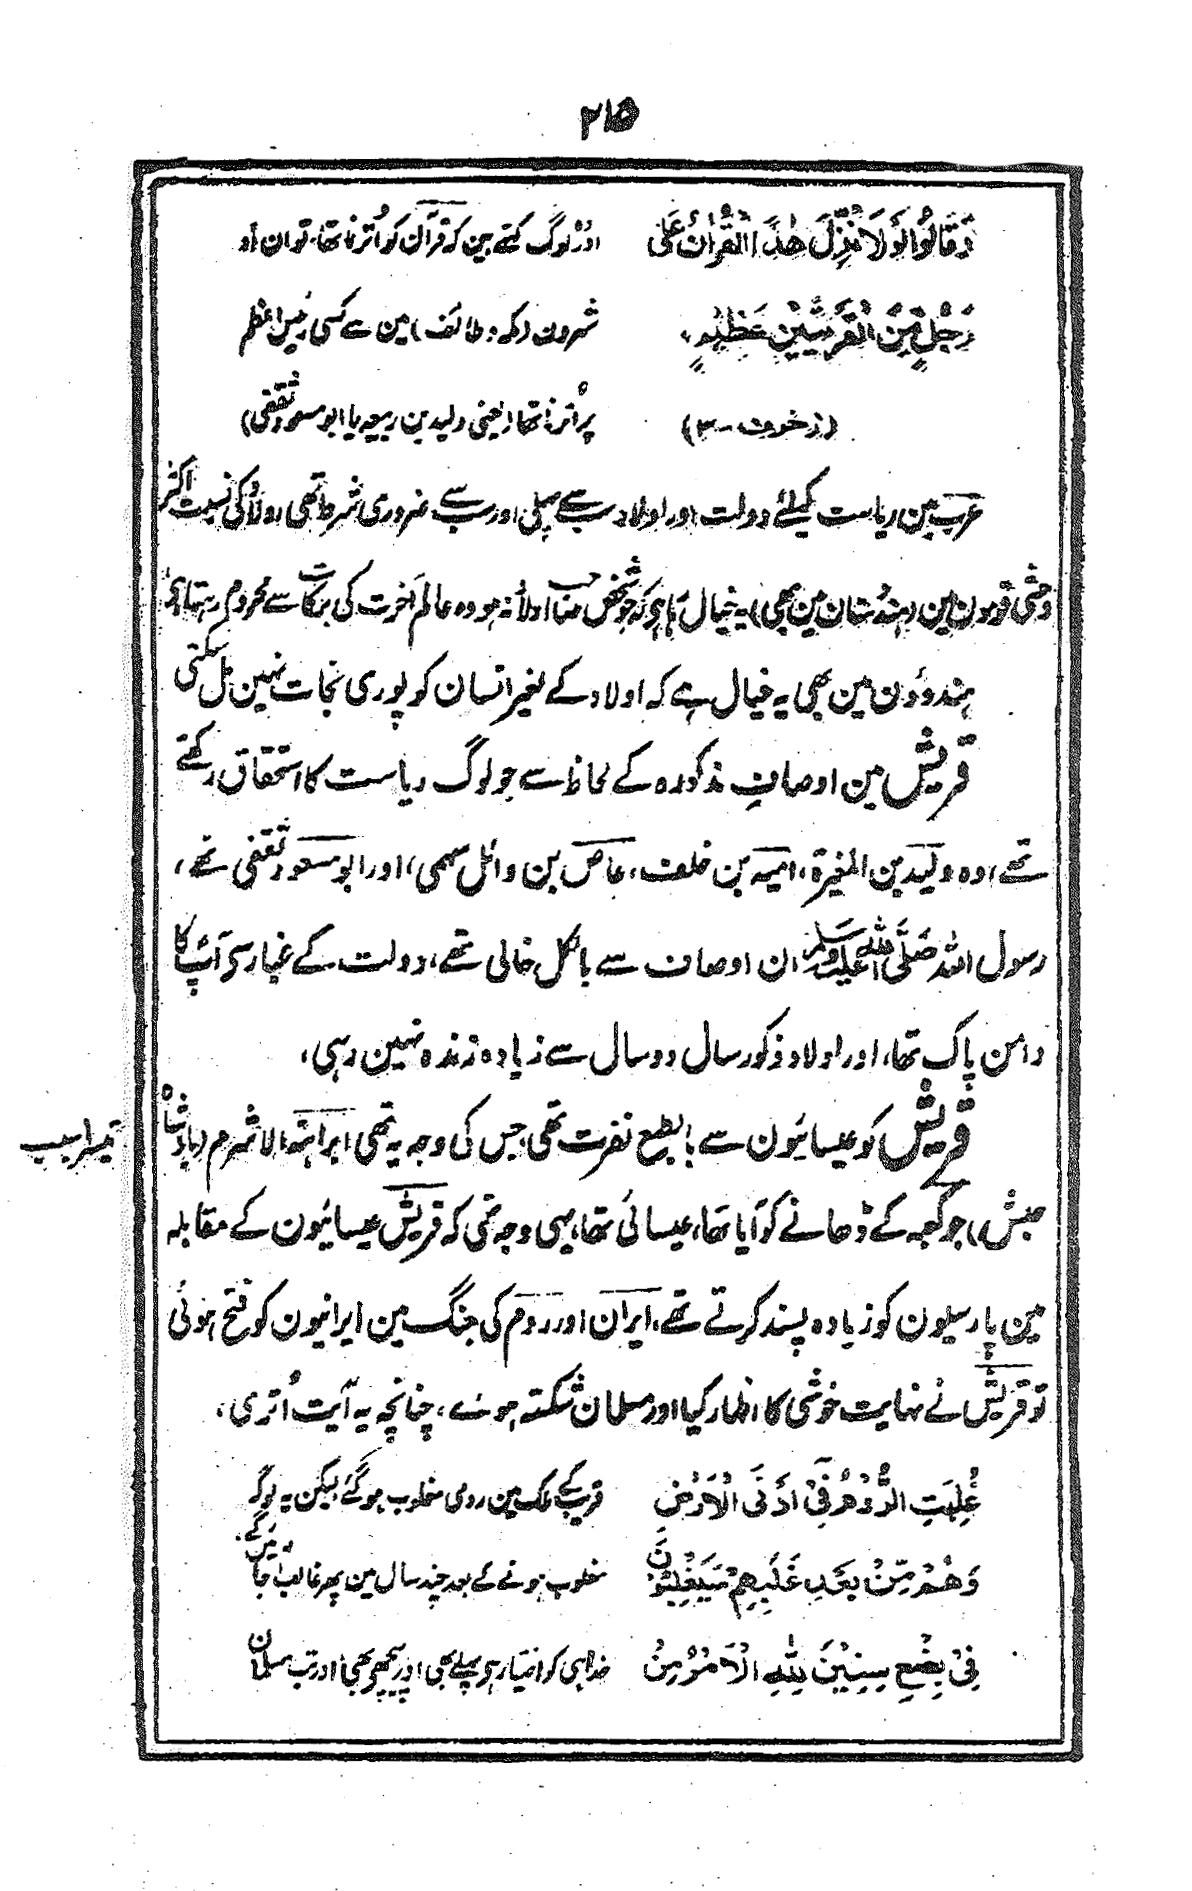 ۲۱۵
وَقَالُوْا لَوْلَا نُزِّلَ هٰذَا الْقُرْاٰنُ عَلٰى اور لوگ کہتے ہین کہ قرآن کو اُترنا تھا، تو ان دو
رَجُلٍ مِّنَ الْقَرْيَتَيْنِ عَظِيْمٍ، شہرون (مکہ و طائف) مین سے کسی رئیس اعظم
(زخرف - ۳) پر اُترنا تھا (یعنی ولید بن ربیعہ یا ابو مسعود ثقفی)
عرب مین ریاست کیلئے دولت اور اولاد سب سے پہلی اور سب سے ضروری شرط تھی (اولاد کی نسبت اکثر
وحشی قومون مین (ہندوستان مین بھی) یہ خیال رہا ہی کہ جو شخص صاحب اولاد نہ ہو وہ عالم آخرت کی برکات سے محروم رہتا ہی
ہندوؤن مین بھی یہ خیال ہے کہ اولاد کے بغیر انسان کو پوری نجات نہین مل سکتی
قریش مین اوصافِ مذکورہ کے لحاظ سے جو لوگ ریاست کا استحقاق رکھتے
تھے، وہ ولید بن المغیرۃ، امیہ بن خلف، عاص بن وائل سہمی، اور ابو مسعود ثقفی تھے،
رسول اللہ صَلَّی اللہ علیہ وسلم ان اوصاف سے بالکل خالی تھے، دولت کے غبار سے آپ کا
دامن پاک تھا، اور اولاد ذکور سال دو سال سے زیادہ زندہ نہین رہی،
قریش کو عیسائیون سے بالطبع نفرت تھی جس کی وجہ یہ تھی ابراہۃ الاشرم (بادشاہ
تیسرا سبب
حبش) جو کعبہ کے ڈھانے کو آیا تھا، عیسائی تھا، یہی وجہ تھی کہ قریش عیسائیون کے مقابلہ
مین پارسیون کو زیادہ پسند کرتے تھے، ایران اور روم کی جنگ مین ایرانیون کو فتح ہوئی
تو قریش نے نہایت خوشی کا اظہار کیا اور مسلمان شکستہ ہوے، چنانچہ یہ آیت اُتری،
غُلِبَتِ الرُّوْمُ فِيْ اَدْنَى الْاَرْضِ قریب کے ملک مین رومی مغلوب ہو گئے لیکن یہ لوگ
وَهُمْ مِّنْ بَعْدِ غَلَبِهِمْ سَيَغْلِبُوْنَ مغلوب ہونے کے بعد چند سال مین پھر غالب آ جائین گے
فِيْ بِضْعِ سِنِيْنَ لِلّٰهِ الْاَمْرُ مِنْ خدا ہی کو اختیار ہی پہلے بھی اور پیچھے بھی اور تب مسلمان